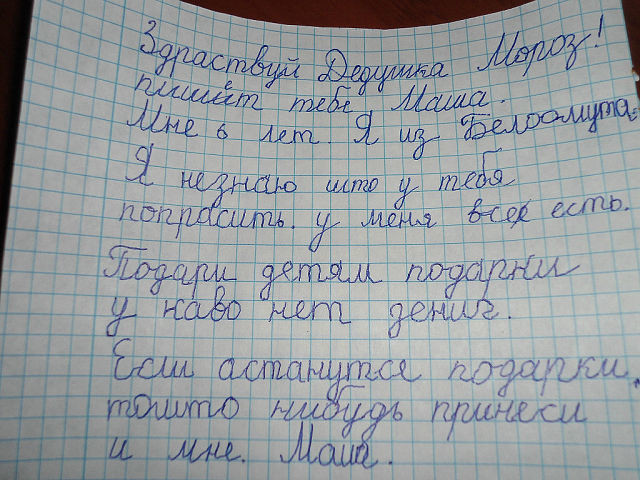 Здраствуй Дедушка Мороз!
пишет тебе Маша.
Мне 6 лет. Я из Белоомута.
Я незнаю што у тебя
попрасить. у меня всех есть.
Подари детям подарки
у каво нет дениг.
Если астанутся подарки,
тошто нибудь принеси
и мне. Маша.